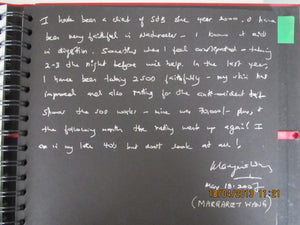 I have been a client of SDB since year 2000. I have
been very faithful in Nutrawater - I know it aids
in digestion. Sometimes when I feel constipated - taking
2-3 the night before will help. In the last year,
I have been taking 2500 faithfully - my skin has
improved and also rating for the anti-oxidant test
shows the 500 works - mine was 70,000/- plus, &
the following month the rating went up again! I
am in my late 40s but don't look at all!
Nov. 18. 2007
18/04/2013 11:21
(MARGARET WANG)